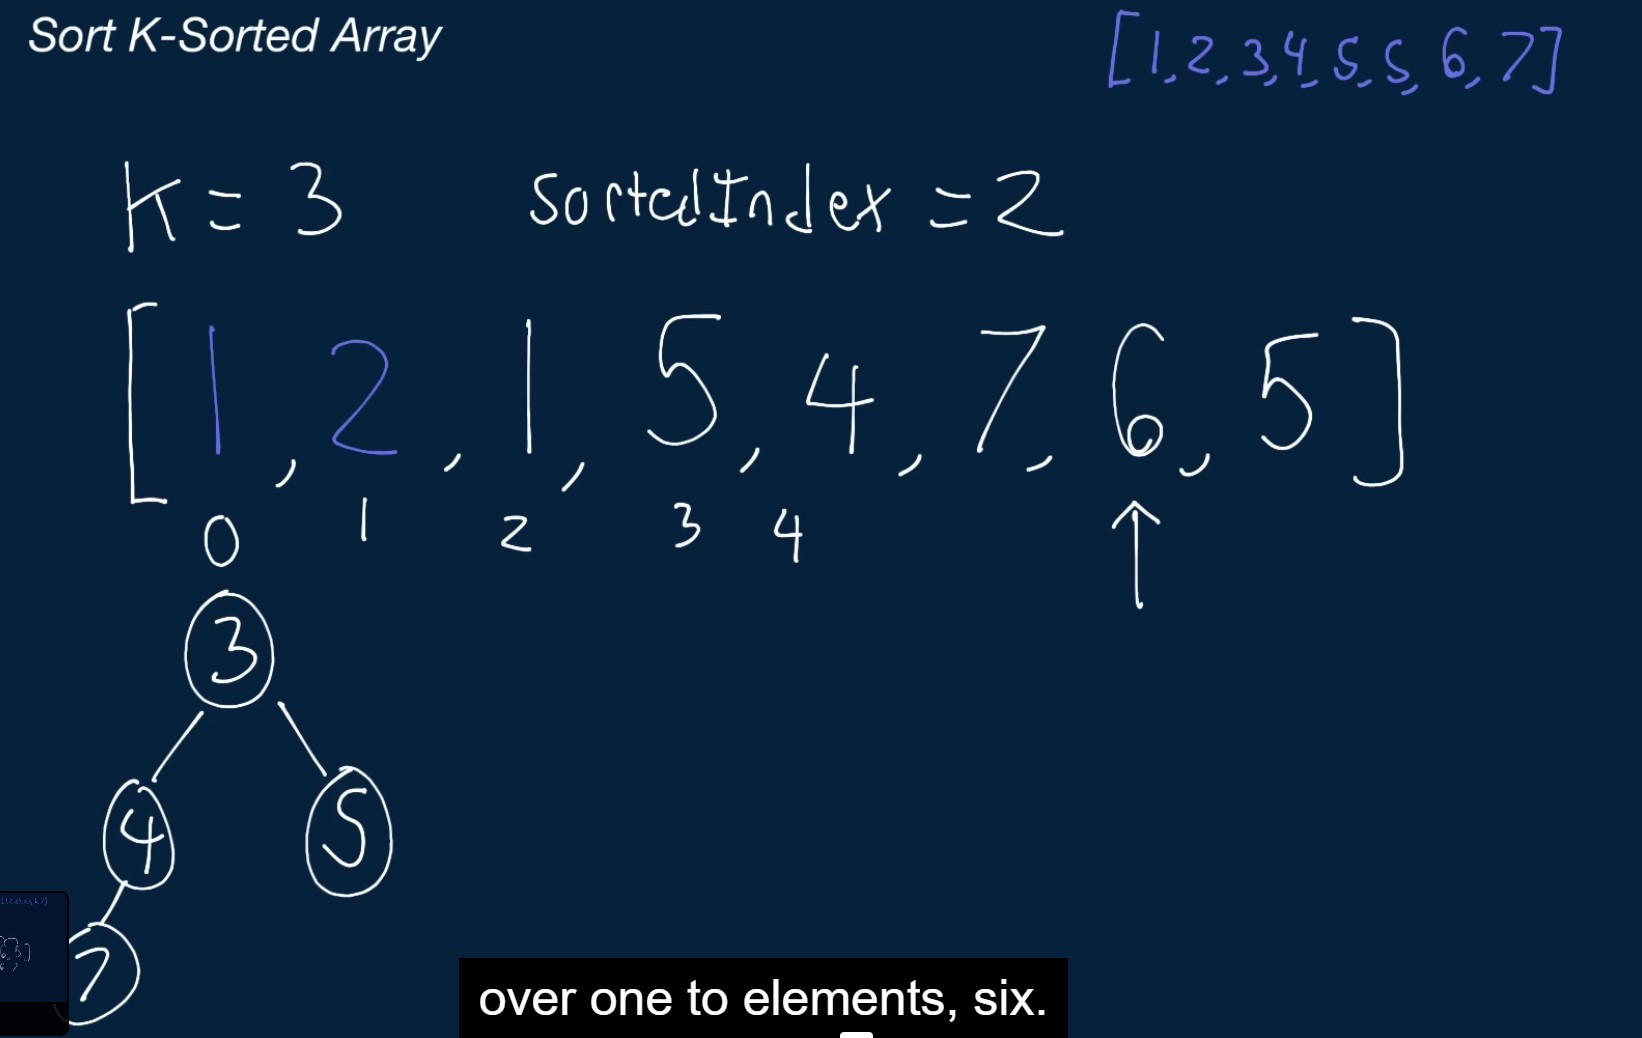 Sort K-Sorted Array
[1,2,3,4,5,5,6,7]
K=3 SortedIndex=2
[1,2,1,5,4,7,6,5]
0 1 2 3 4
3
4 5
7
over one to elements, six.